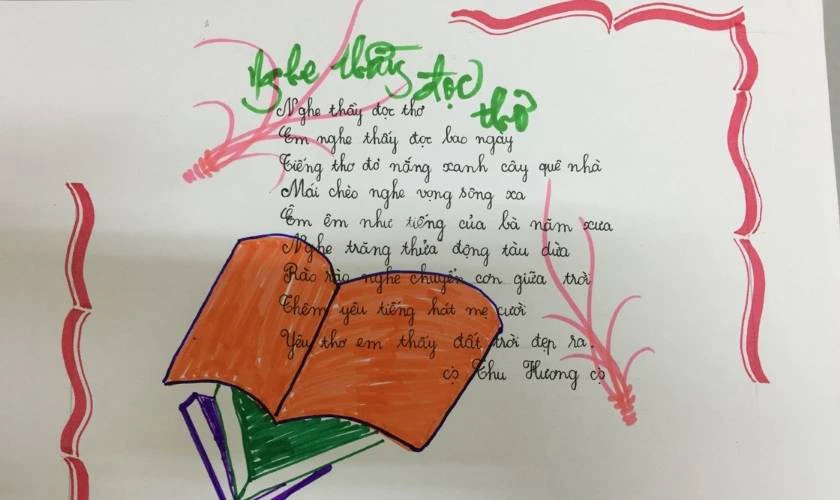 Nghe thầy đọc thơ
Nghe thầy đọc thơ
Em nghe thầy đọc bao ngày
Tiếng thơ đỏ nắng xanh cây quê nhà
Mái chèo nghe vọng sông xa
Êm êm như tiếng của bà năm xưa
Nghe trăng thửa động tàu dừa
Rào rào nghe chuyển cơn giữa trời
Thêm yêu tiếng hát mẹ cười
Yêu thơ em thấy đất trời đẹp ra.
Thu Hương